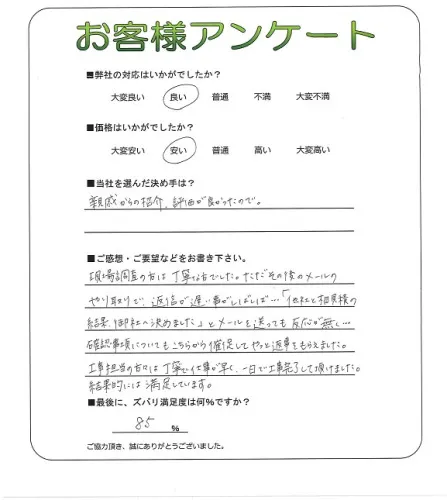 お客様アンケート
■弊社の対応はいかがでしたか？
大変良い 良い 普通 不満 大変不満
■価格はいかがでしたか？
大変安い 安い 普通 高い 大変高い
■当社を選んだ決め手は？
親戚からの紹介、評価が良かったので。
■ご感想・ご要望などをお書き下さい。
現場調査の方は丁寧な方でした。ただその後のメールの
やり取りで、返信が遅い事がしばしば…「他社と相見積の
結果、御社に決めました」とメールを送っても反応が無し…
確認事項についてもこちらから催促してやっと返事をもらえました。
工事担当の方々は丁寧で仕事が早く、一日で工事完了して頂けました。
結果的には満足しています。
■最後に、ズバリ満足度は何％ですか？
85 ％
ご協力頂き、誠にありがとうございました。